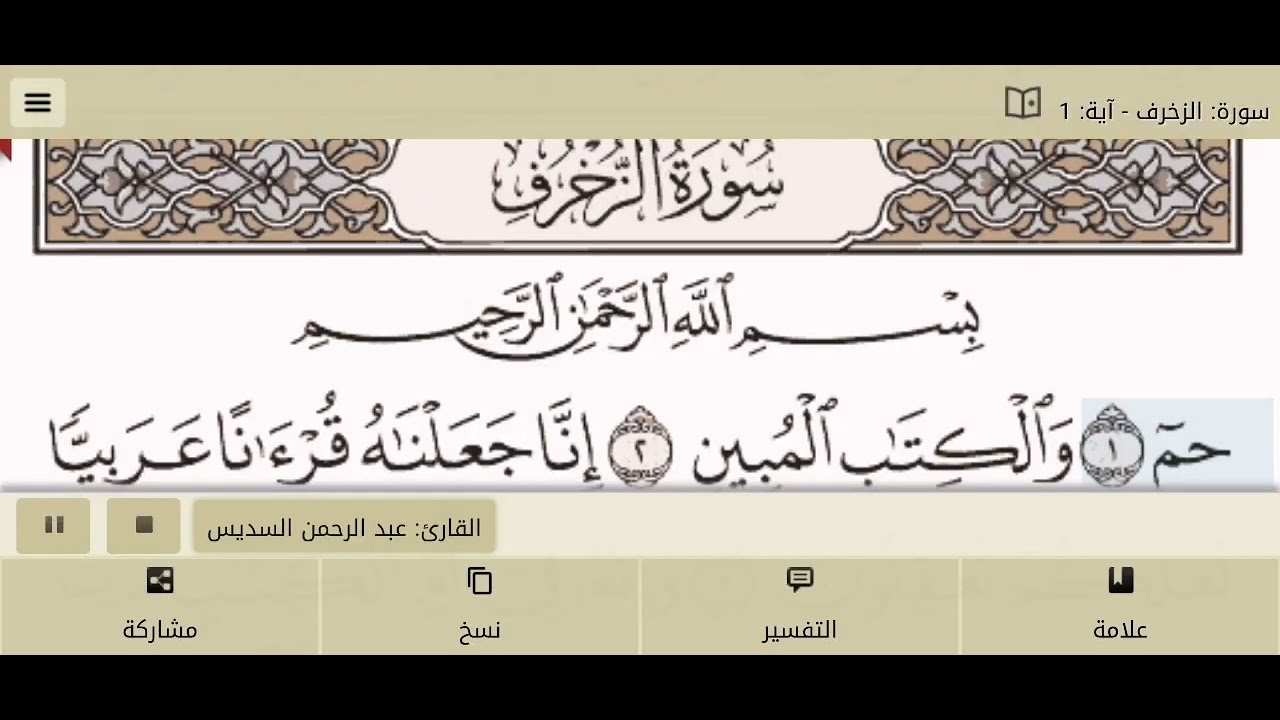 سورة: الزخرف - آية: 1
سُورَةُ الزُّخْرُفِ
بِسْمِ ٱللَّهِ ٱلرَّحْمَٰنِ ٱلرَّحِيمِ
حمٓ ١ وَٱلْكِتَٰبِ ٱلْمُبِينِ ٢ إِنَّا جَعَلْنَٰهُ قُرْءَٰنًا عَرَبِيًّا
القارئ: عبد الرحمن السديس
علامة
التفسير
نسخ
مشاركة